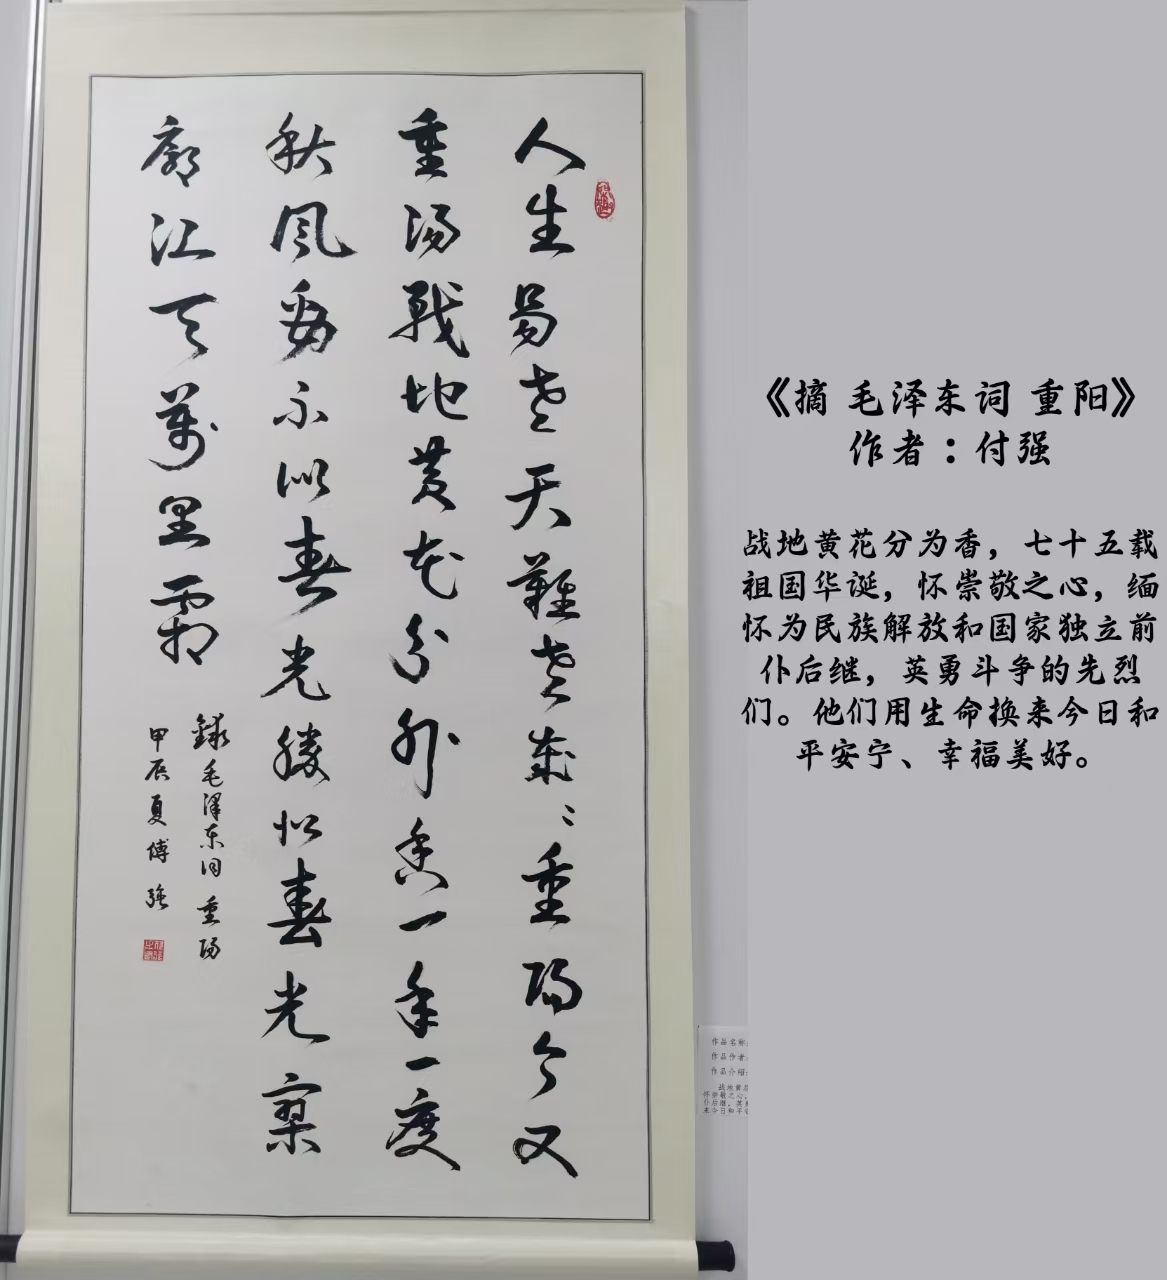 人生易老天難老歲〻重陽今又
重陽戰地黃花分外香一年一度
秋風勁不似春光勝似春光寥
廓江天萬里霜
錄毛澤東詞 重陽
甲辰夏傅強
《摘 毛泽东词 重阳》
作者：付强
战地黄花分为香，七十五载
祖国华诞，怀崇敬之心，缅
怀为民族解放和国家独立前
仆后继，英勇斗争的先烈
们。他们用生命换来今日和
平安宁、幸福美好。
作品名称:
作品作者:
作品介绍:
战地黄
怀崇敬之心,
仆后继，英
来今日和平